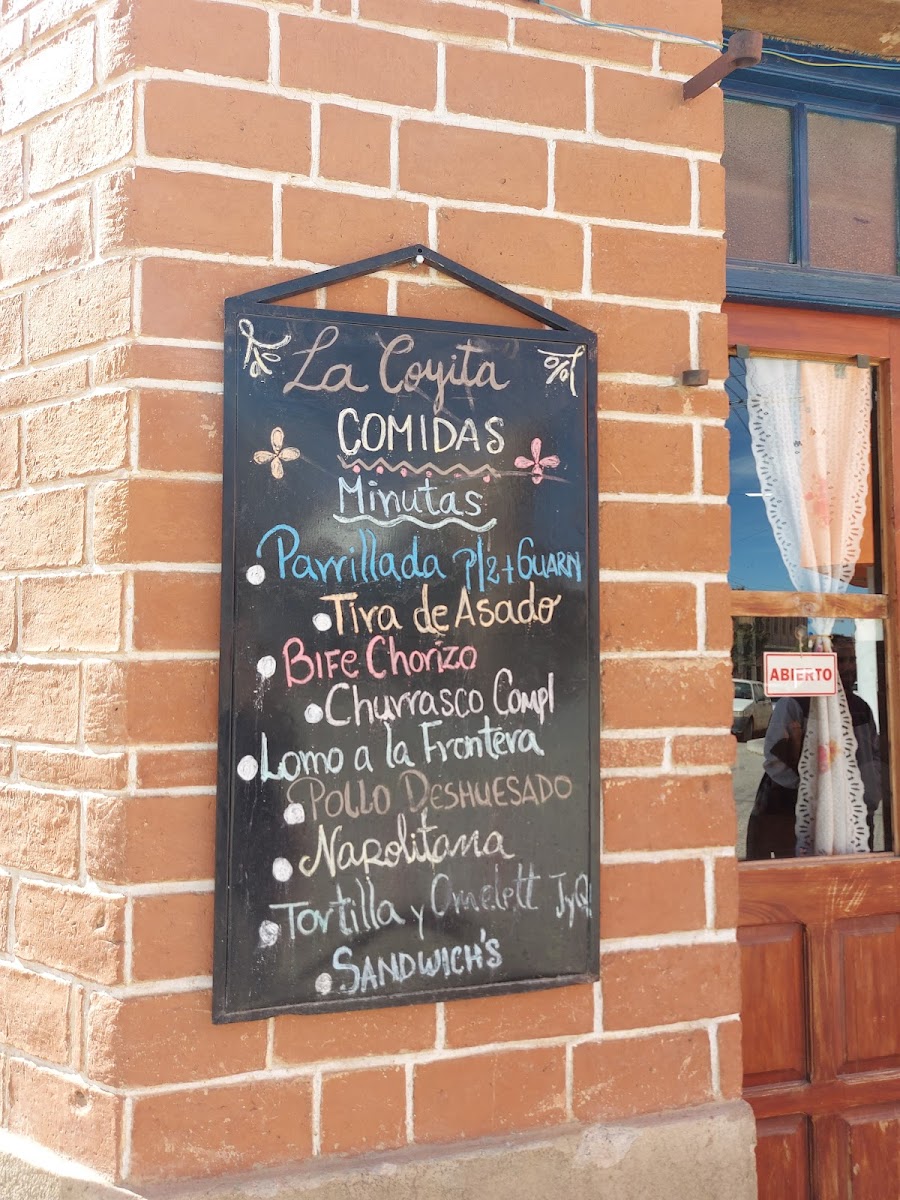 La Coyita
COMIDAS
Minutas
Parrillada p/2+GUARN
Tira de Asado
BIFE CHORIZO
CHURRASCO Compl
Lomo a la Frontera
POLLO DESHUESADO
Napolitana
Tortilla y Omelett JyQ
SANDWICH'S
ABIERTO